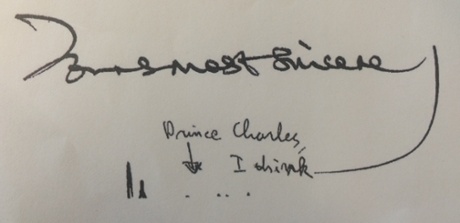 Yours most sincere
Prince Charles,
I think